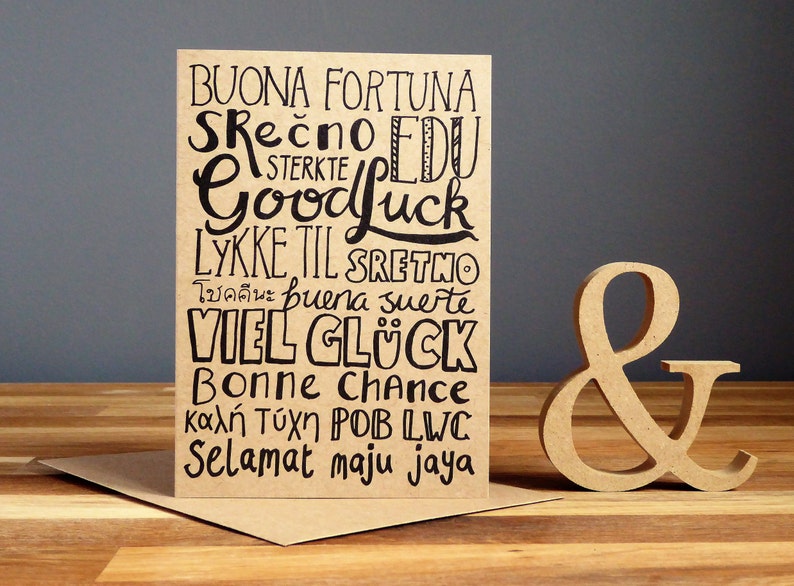 BUONA FORTUNA
SREČNO EDU
STERKTE
Good Luck
LYKKE TIL SRETNO
โชคดีนะ buena suerte
VIEL GLÜCK
Bonne chance
καλή τύχη POB LWC
Selamat maju jaya
&